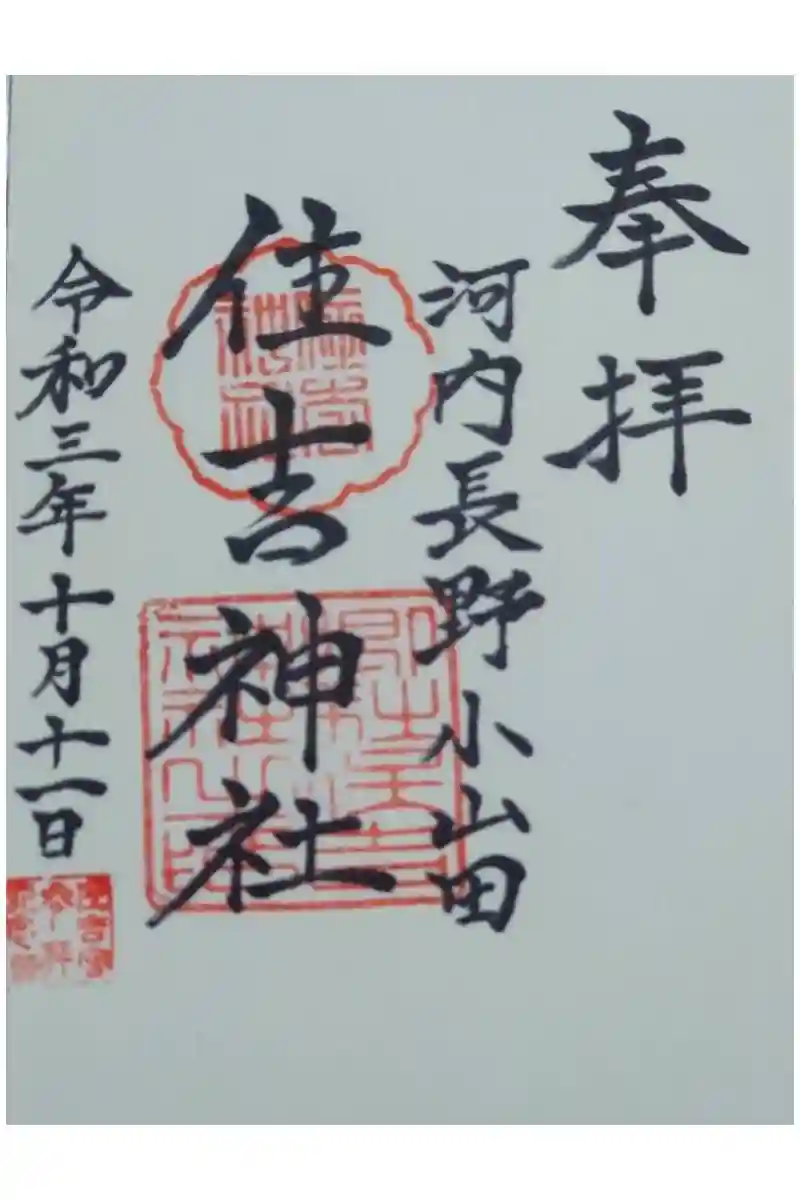 奉拝
河内長野小山田
住吉神社
令和三年十月十一日